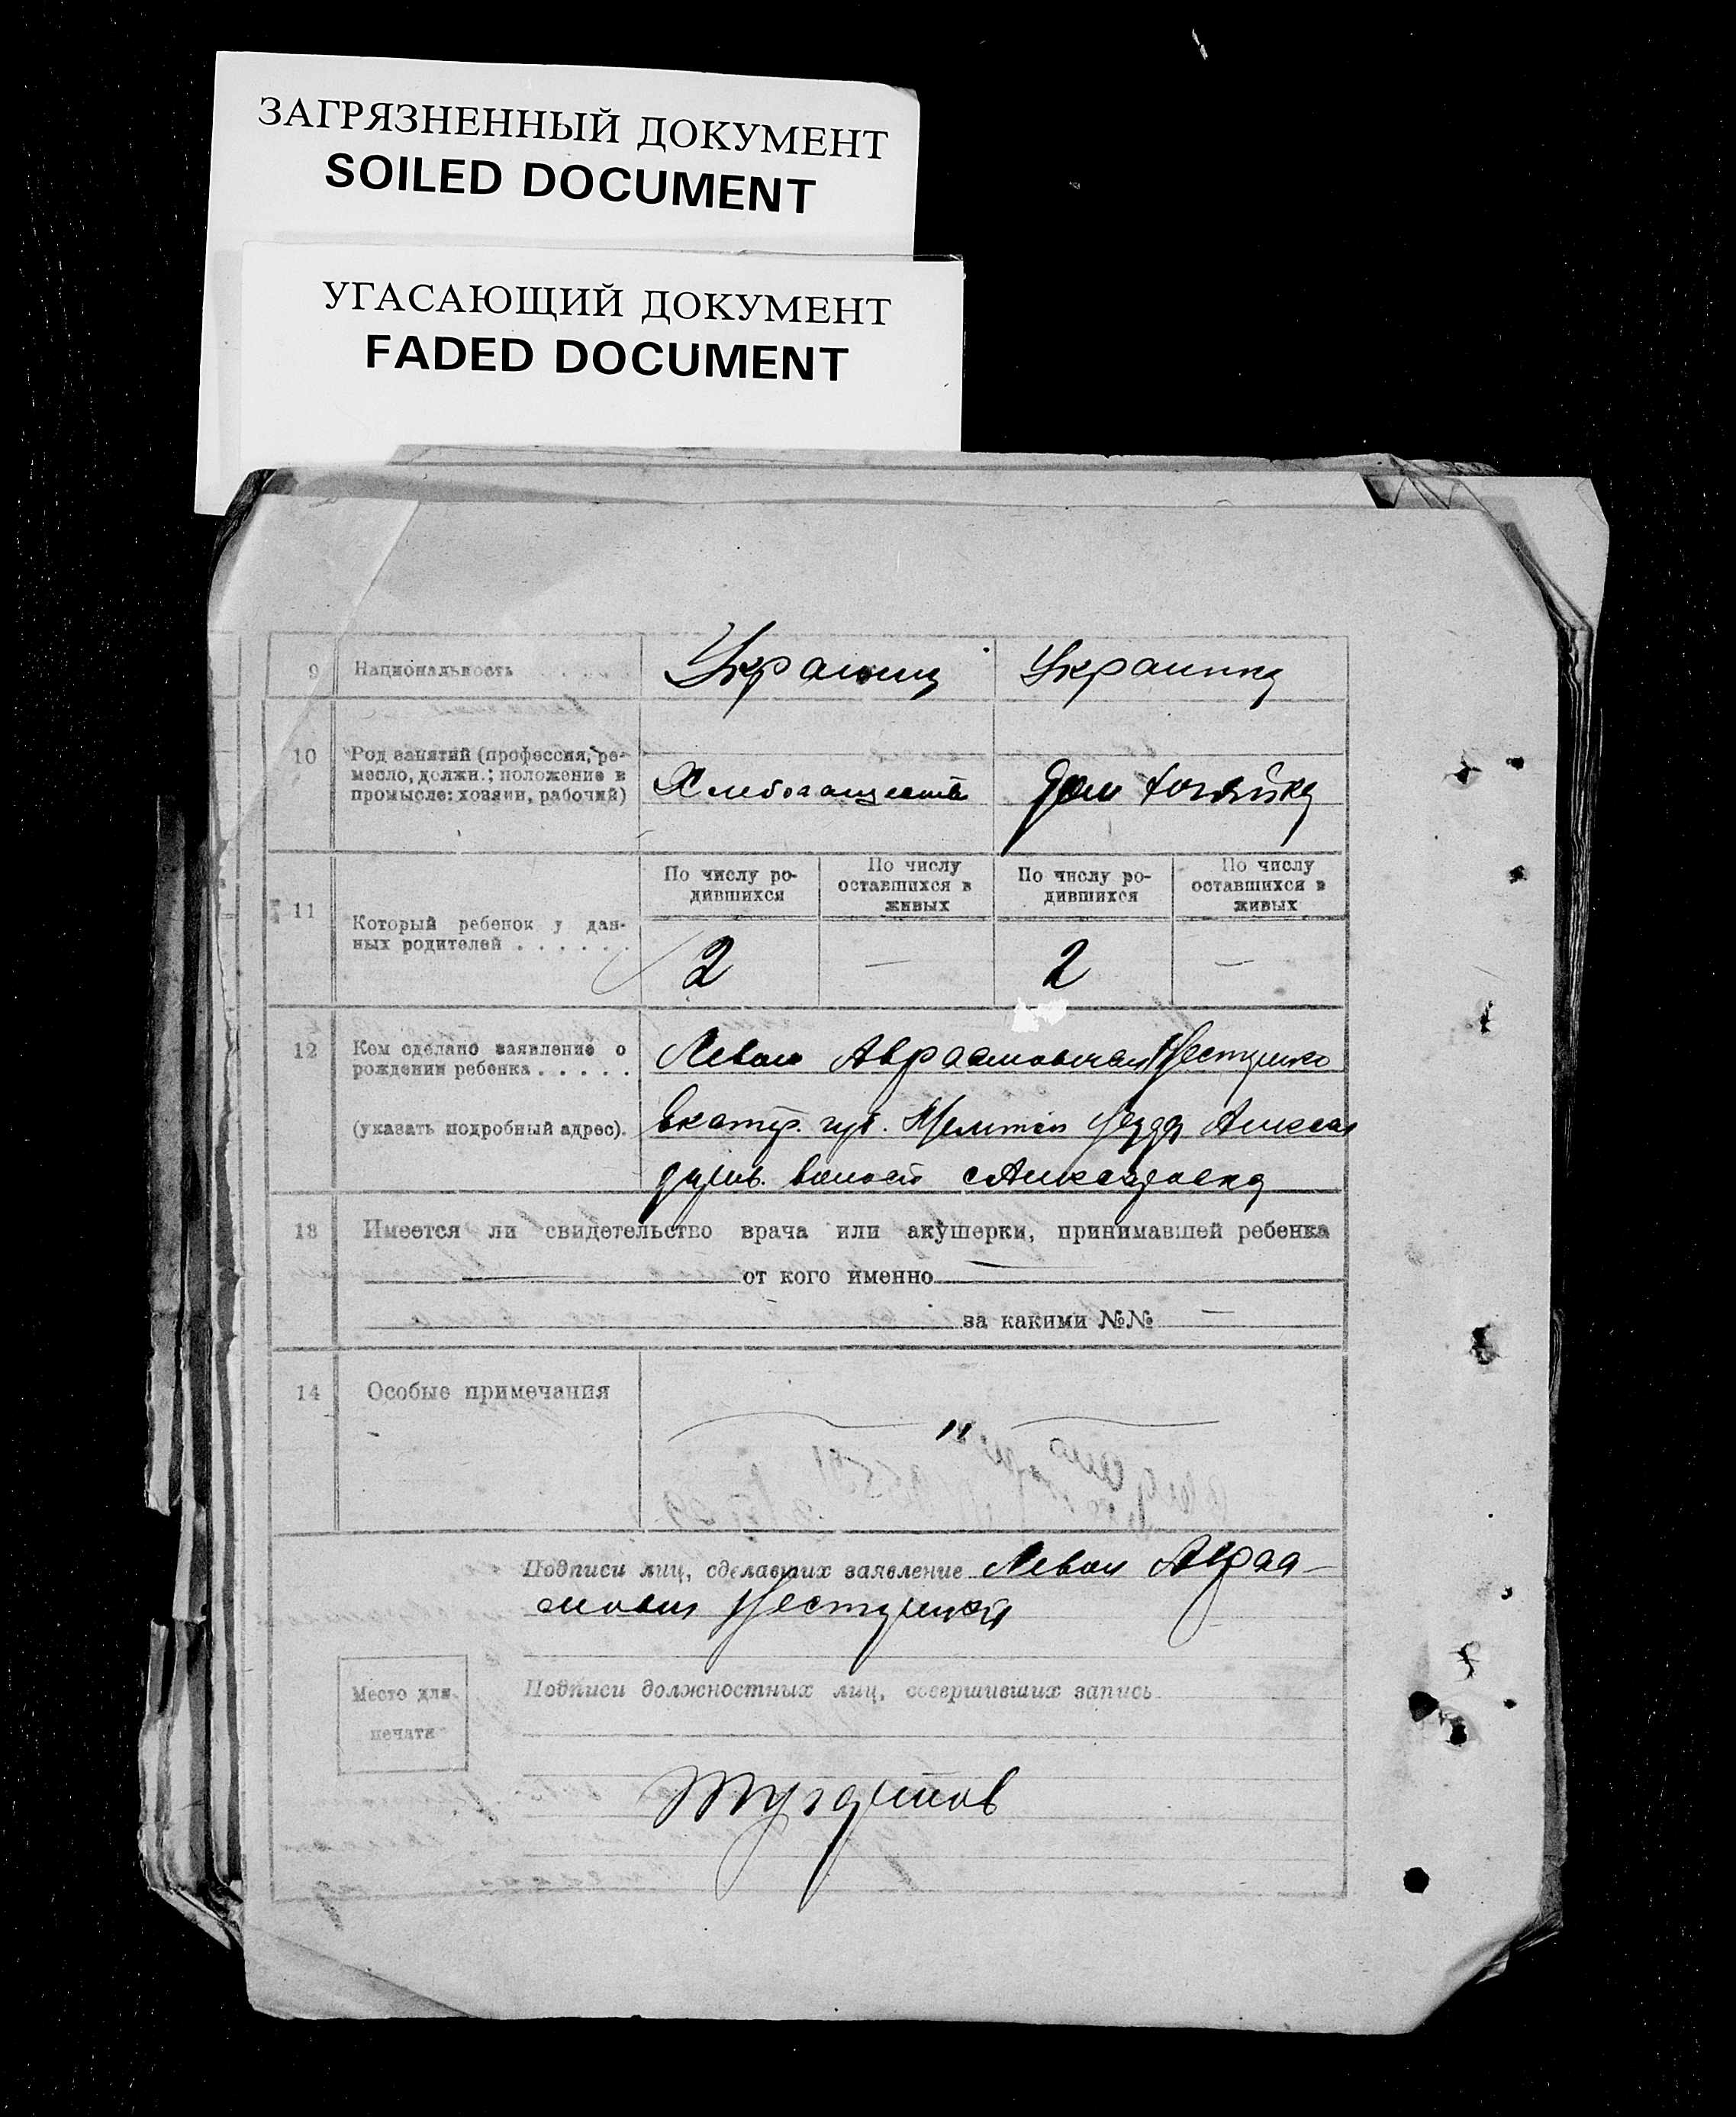 ЗАГРЯЗНЕННЫЙ ДОКУМЕНТ
SOILED DOCUMENT
УГАСАЮЩИЙ ДОКУМЕНТ
FADED DOCUMENT
9 Национальность Украинец Украинка
10 Род занятий (профессия, ре-
месло, должн.; положение в
промысле: хозяин, рабочий)
Хлебопашество Дом хозяйка
11 Который ребенок у дан-
ных родителей . . . . . .
По числу ро-
дившихся
По числу
оставшихся в
живых
По числу ро-
дившихся
По числу
оставшихся в
живых
2 — 2 —
12 Кем сделано заявление о
рождении ребенка . . . . .
(указать подробный адрес).
Левон Аврамович
Екатер. губ. уезда Алексан
волость с Александровка
13 Имеется ли свидетельство врача или акушерки, принимавшей ребенка
— от кого именно —
за какими №№ —
14 Особые примечания
"
Подписи лиц, сделавших заявление Левон Авраа-
мович
Место для
печати
Подписи должностных лиц, совершивших запись